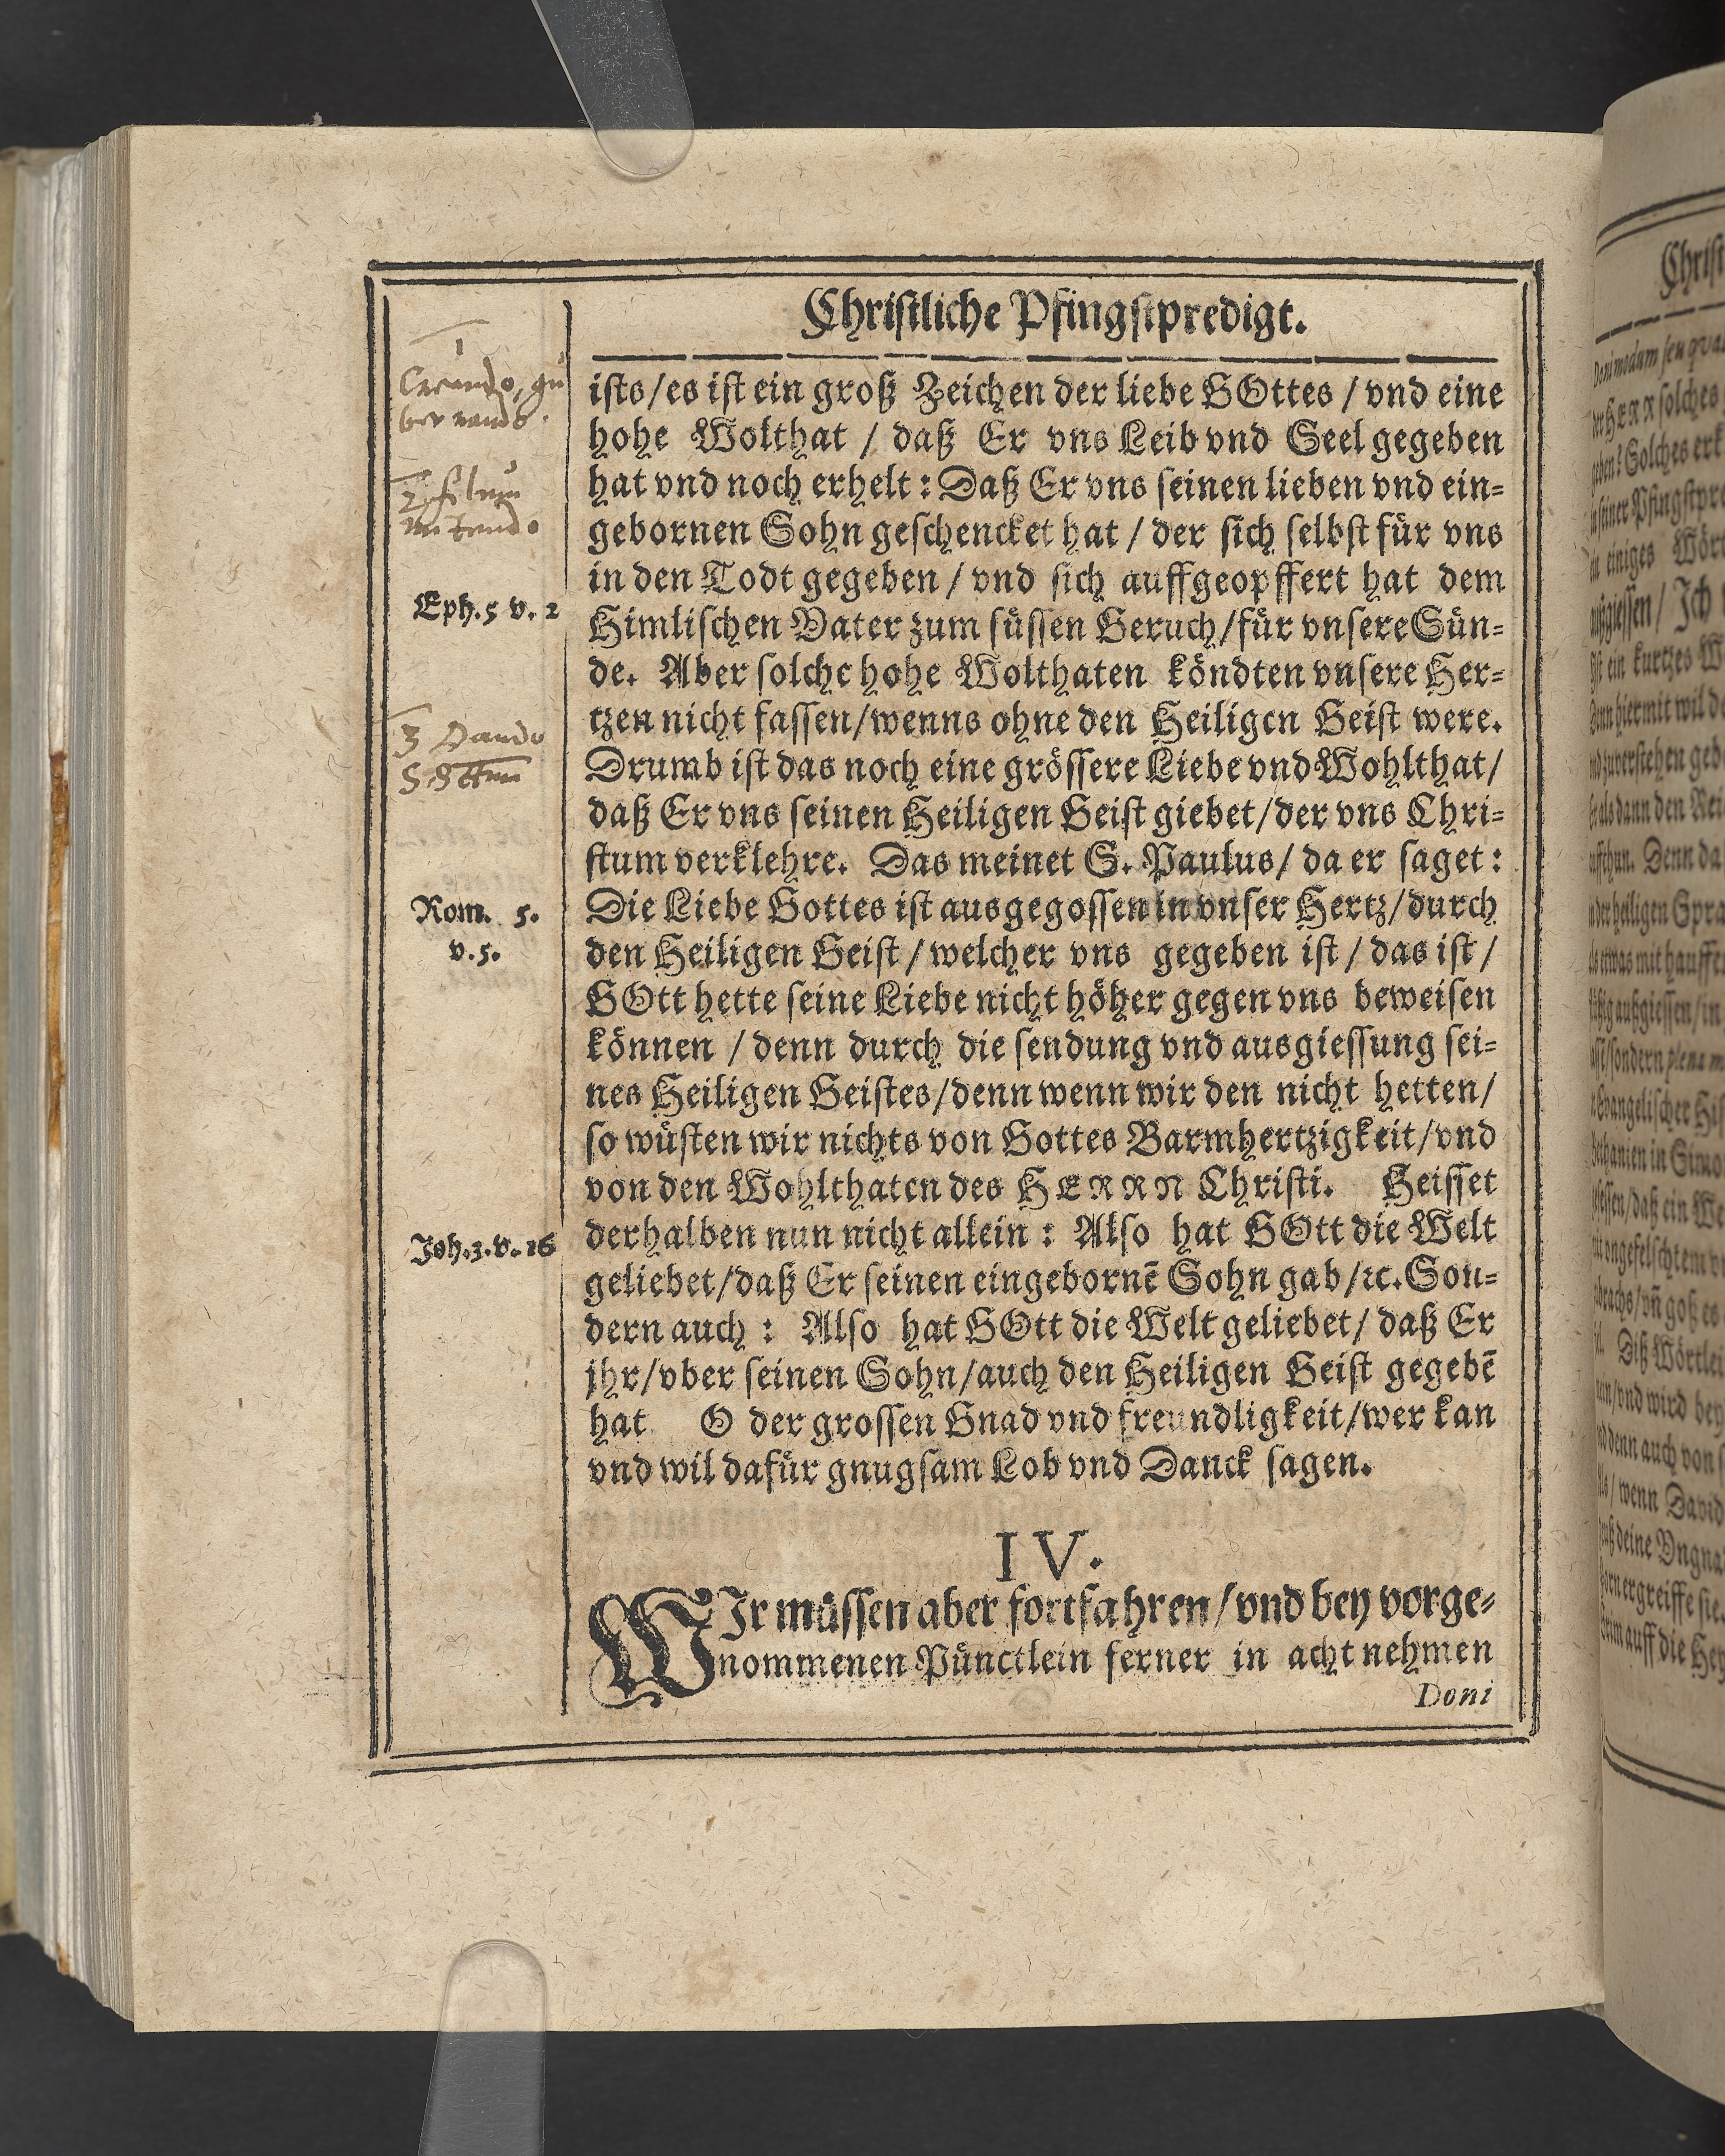 Christliche Pfingstpredigt.
1
Creando, gu
bernando.
ists/es ist ein groß Zeichen der liebe GOttes / vnd eine
hohe Wolthat / daß Er vns Leib vnd Seel gegeben
2 filium
mitendo
hat vnd noch erhelt: Daß Er vns seinen lieben vnd ein-
gebornen Sohn geschencket hat / der sich selbst für vns
in den Todt gegeben / vnd sich auffgeopffert hat dem
Eph. 5 v. 2
Himlischen Vater zum süssen Geruch/für vnsere Sün-
de. Aber solche hohe Wolthaten köndten vnsere Her-
tzen nicht fassen/wenns ohne den Heiligen Geist were.
3 Dando
Drumb ist das noch eine grössere Liebe vnd Wohlthat/
daß Er vns seinen Heiligen Geist giebet/der vns Chri-
stum verklehre. Das meinet S. Paulus/ da er saget:
Rom. 5.
v. 5.
Die Liebe Gottes ist ausgegossen in vnser Hertz/durch
den Heiligen Geist / welcher vns gegeben ist / das ist /
GOtt hette seine Liebe nicht höher gegen vns beweisen
können / denn durch die sendung vnd ausgiessung sei-
nes Heiligen Geistes/denn wenn wir den nicht hetten/
so wüsten wir nichts von Gottes Barmhertzigkeit/vnd
von den Wohlthaten des HERRN Christi. Heisset
Joh. 3. v. 16
derhalben nun nicht allein: Also hat GOtt die Welt
geliebet/daß Er seinen eingebornē Sohn gab/ꝛc. Son-
dern auch: Also hat GOtt die Welt geliebet/ daß Er
jhr/vber seinen Sohn/auch den Heiligen Geist gegebē
hat O der grossen Gnad vnd freundligkeit/wer kan
vnd wil dafür gnugsam Lob vnd Danck sagen.
IV.
WIr müssen aber fortfahren/vnd bey vorge-
nommenen Pünctlein ferner in acht nehmen
Doni